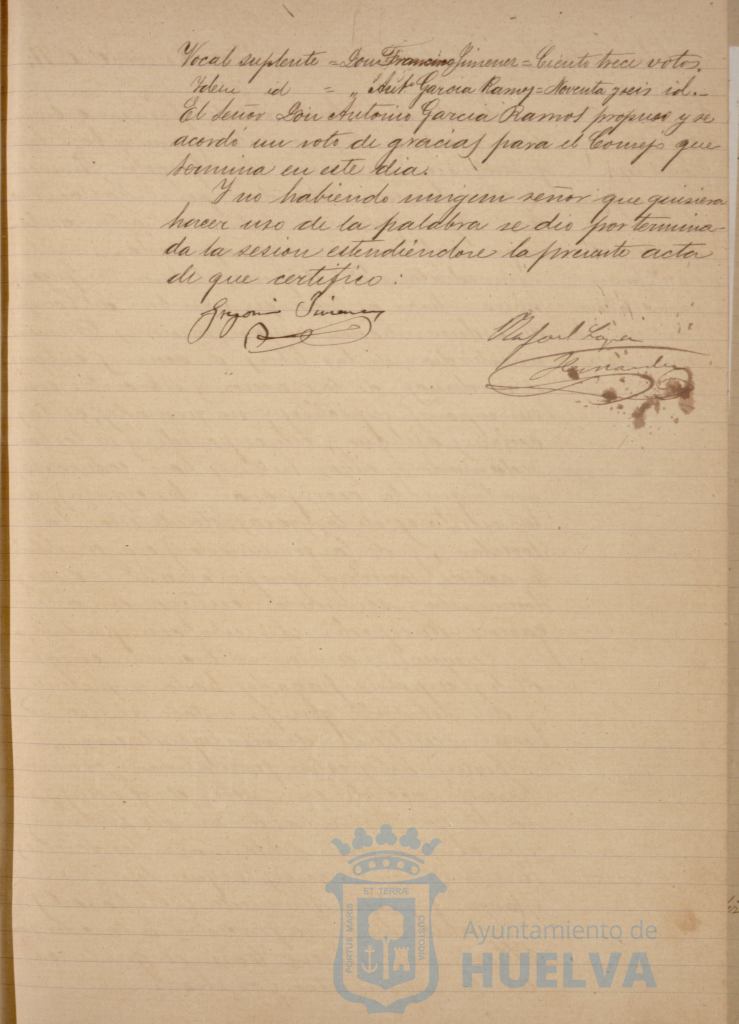 Vocal suplente = Don Francisco Jimenez = Ciento trece votos.
Idem id = " Antº Garcia Ramos = Noventa y seis id.-
El Señor Don Antonio Garcia Ramos propuso y se
acordó un voto de gracias para el Consejo que
termina en este dia.
Y no habiendo ningun señor que quisiera
hacer uso de la palabra se dió por termina-
da la sesion estendiéndose la presente acta
de que certifico:
Gregorio Jimenez
Rafael Lopez
Hernandez
ET TERRÆ
PORTUS MARIS
CUSTODIA
Ayuntamiento de
HUELVA